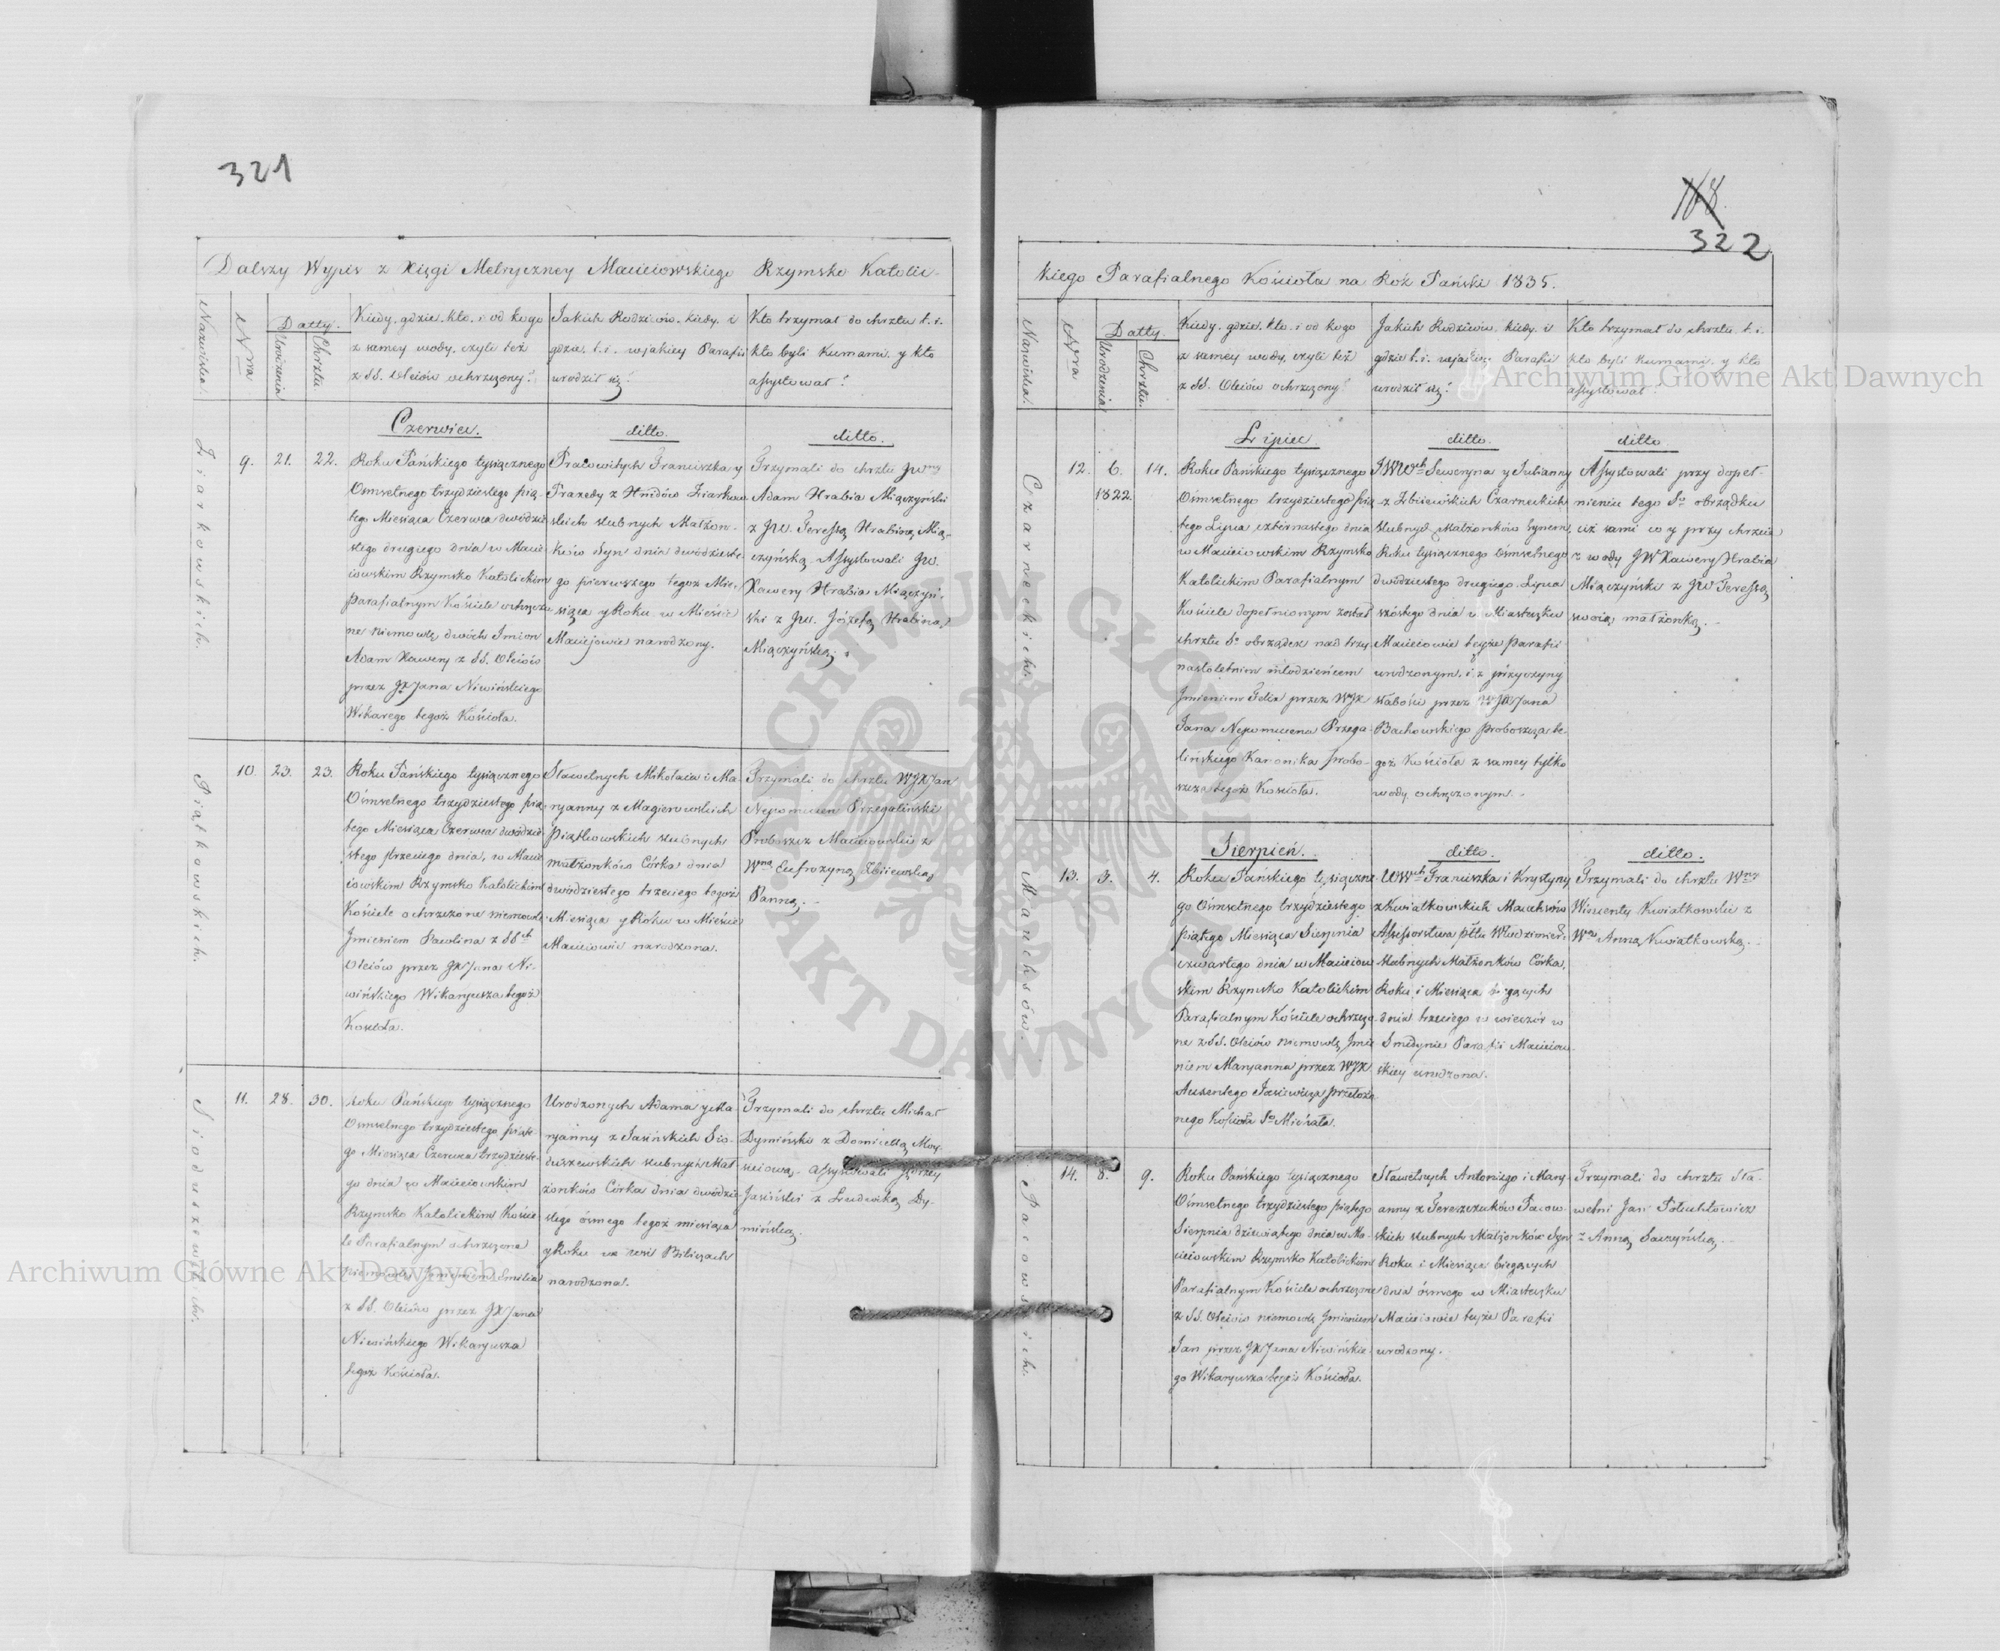 321
Dalszy Wypis z Xięgi Metryczney Maciejowskiego Rzymsko Katolic-
Nazwiska.
Nra
Datty.
Urodzenia
Chrztu
Kiedy, gdzie, kto, i od kogo
z samey wody, czyli też
z SS. Oleiów ochrzczony?
Jakich Rodziców, kiedy, i
gdzie, t. i. w jakiey Parafii
urodził się?
Kto trzymał do chrztu t. i.
kto byli Kumami, y kto
assystował?
Ziarkowskich.
9.
21.
22.
Czerwiec.
Roku Pańskiego tysiącznego
Osmsetnego trzydziestego pią-
tego Miesiąca Czerwca dwódzie-
stego drugiego dnia w Macie-
iowskim Rzymsko Katolickim
Parafialnym Kościele ochrzczo-
ne niemowlę dwóch Imion
Adam Xawery z SS. Oleiów
przez JX Jana Niwińskiego
Wikarego tegoż Kościoła.
ditto.
Pracowitych Franciszka y
Praxedy z Hnidów Ziarkow-
skich slubnych Małżon-
ków Syn dnia dwódzieste-
go pierwszego tegoż Mie-
siąca y Roku w Mieście
Maciejowie narodzony.
ditto.
Trzymali do chrztu JW
Adam Hrabia Miączyński
z JW. Teressą Hrabiną Mią-
czyńską. Assystowali JW.
Xawery Hrabia Miączyń-
ski z JW. Józefą Hrabiną
Miączyńską.
Piątkowskich.
10.
23.
23.
Roku Pańskiego tysiącznego
Ośmsetnego trzydziestego pią-
tego Miesiąca Czerwca dwódzie-
stego trzeciego dnia, w Macie-
iowskim Rzymsko Katolickim
Kościele ochrzczone niemowle
Imieniem Paulina z SSch
Oleiów przez JX Jana Ni-
wińskiego Wikaryusza tegoż
Kościoła.
Sławetnych Mikołaia i Ma-
ryanny z Magierowskich
Piątkowskich slubnych
małżonków Córka dnia
dwódziestego trzeciego tegoż
Miesiąca y Roku w Mieście
Maciejowie narodzona.
Trzymali do chrztu WJX Jan
Nepomucen Przegaliński
Proboszcz Maciejowski z
Wną Eufrozyną Zbiiewską
Panną.
Sioduszewskich.
11.
28.
30.
Roku Pańskiego tysiącznego
Osmsetnego trzydziestego piąte-
go Miesiąca Czerwca trzydzieste-
go dnia w Maciejowskim
Rzymsko Katolickim Koście-
le Parafialnym ochrzczone
niemowle Imieniem Emilia
z SS. Oleiów przez JX Jana
Niwińskiego Wikaryusza
tegoż Kościoła.
Urodzonych Adama y Ma-
ryanny z Jasińskich Sio-
duszewskich slubnych Mał-
żonków Córka dnia dwódzie-
stego ósmego tegoż miesiąca
y Roku we wsi Biliczach
narodzona.
Trzymali do chrztu Michał
Dymiński z Domicellą Moy-
sieiową. Assystowali Jędrzey
Jasiński z Ludwiką Dy-
mińską.
168.
322
kiego Parafialnego Kościoła na Rok Pański 1835.
Nazwiska.
Nra
Datty.
Urodzenia
Chrztu.
Kiedy, gdzie, kto, i od kogo
z samey wody, czyli też
z SS. Oleiów ochrzczony?
Jakich Rodziców, kiedy, i
gdzie t. i. w jakiey Parafii
urodził się?
Kto trzymał do chrztu, t. i.
kto byli kumami, y kto
assystował?
Czarneckich.
12.
6.
1822.
14.
Lipiec.
Roku Pańskiego tysiącznego
Osmsetnego trzydziestego pią-
tego Lipca cztérnastego dnia
w Maciejowskim Rzymsko
Katolickim Parafialnym
Kościele dopełnionym został
chrztu So obrządek nad trzy-
nastoletnim młodzieńcem
Imieniem Felix przez WJX
Jana Nepomucena Przega-
lińskiego Kanonika Probo-
szcza tegoż Kościoła.
ditto.
JWWch Seweryna y Julianny
z Zbiiewskich Czarneckich
slubnych Małżonków synem,
Roku tysiącznego ośmsetnego
dwódziestego drugiego, Lipca
szóstego dnia w Miasteczku
Maciejowie teyże Parafii
urodzonym, i z przyczyny
słabości przez WJX Jana
Bachowskiego Proboszcza te-
goż Kościoła z samey tylko
wody ochrzczonym.
ditto
Assystowali przy dopeł-
nieniu tego So obrządku
ciż sami co y przy chrzcie
z wody JW Xawery Hrabia
Miączyński z JW Teressą
swoią małżonką.
Mauchsów.
13.
3.
4.
Sierpień.
Roku Pańskiego tysiączne-
go Ośmsetnego trzydziestego
piątego Miesiąca Sierpnia
czwartego dnia w Macieiow-
skim Rzymsko Katolickim
Parafialnym Kościele ochrzczo-
ne z SS. Oleiów niemowlę Imie-
niem Maryanna przez WJX
Auxentego Jasiewicza Przełożo-
nego Kościoła So Michała.
ditto.
WWch Franciszka i Krystyny
z Kwiatkowskich Mauchsów
Assessorstwa pttu Włodzimier:
slubnych Małżonków Córka,
Roku i Miesiąca bieżących
dnia trzeciego w wieczór w
Smidynie Parafii Macieiow-
skiey urodzona.
ditto.
Trzymali do chrztu Wny
Wincenty Kwiatkowski z
Wną Anną Kwiatkowską.
Pacowskich.
14.
8.
9.
Roku Pańskiego tysiącznego
Ośmsetnego trzydziestego piątego
Sierpnia dziewiątego dnia w Ma-
cieiowskim Rzymsko Katolickim
Parafialnym Kościele ochrzczone
z SS. Oleiów niemowlę Imieniem
Jan przez JX Jana Niwińskie-
go Wikaryusza tegoż Kościoła.
Sławetnych Antoniego i Mary-
anny z Tereszczuków Pacow-
skich slubnych Małżonków Syn
Roku i Miesiąca bieżących
dnia ósmego w Miasteczku
Maciejowie teyże Parafii
urodzony.
Trzymali do chrztu Sła-
wetni Jan
z Anną Saczyńską.
Archiwum Główne Akt Dawnych
Archiwum Główne Akt Dawnych
ARCHIWUM GŁÓWNE AKT DAWNYCH